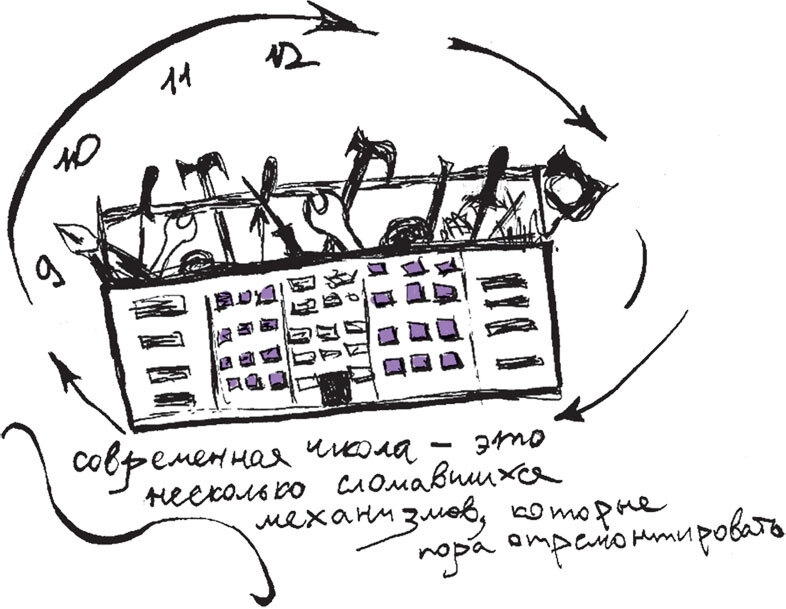 12
11
10
9
современная школа – это
несколько сломавшихся
механизмов, которые
пора отремонтировать